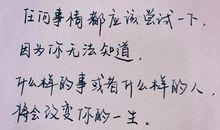 任何事情都应该尝试一下，
因为你无法知道，
什么样的事或者什么样的人，
将会改变你的一生。